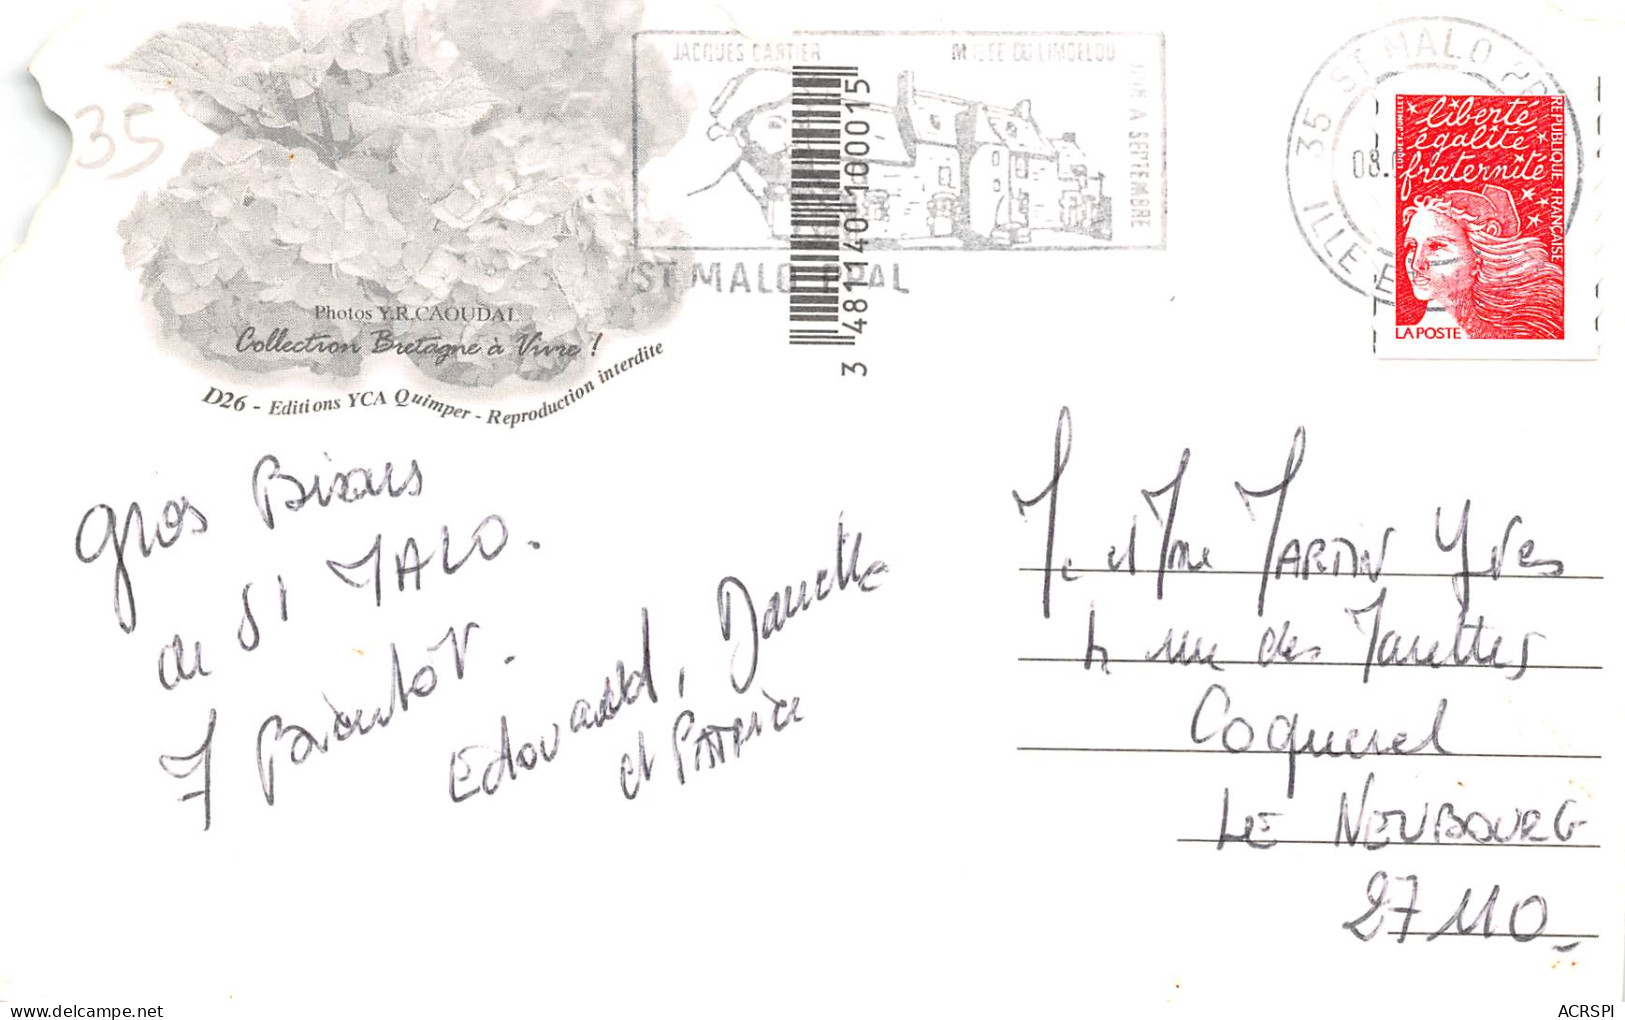 35
Photos Y.R.CAOUDAL
Collection Bretagne à Vivre !
D26 - Editions YCA Quimper - Reproduction interdite
JACQUES CARTIER
MUSEE DU LIMOELOU
JUIN A SEPTEMBRE
ST MALO PPAL
3 481140 100015
35 ST MALO
08.
ILLE
liberté
égalité
fraternité
REPUBLIQUE FRANÇAISE
LA POSTE
Gros Bisous
de St MALO.
A Bientôt.
Edouard, Danielle
et PATRICE
M. et Mme MARTIN Yves
4 rue des
Coquerel
LE NEUBOURG
27110
ACRSPI